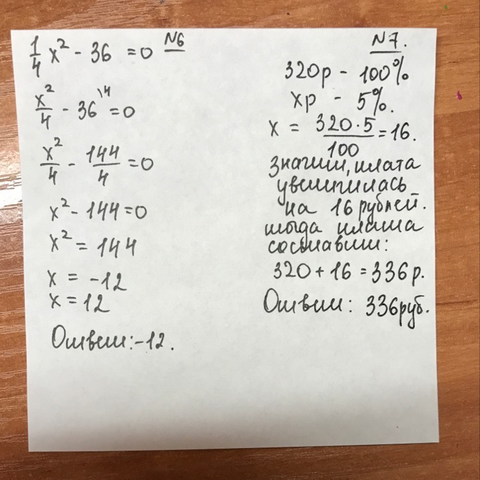 №6
1/4 x² - 36 = 0
x²/4 - 36\4 = 0
x²/4 - 144/4 = 0
x² - 144 = 0
x² = 144
x = -12
x = 12
Ответ: -12.
№7.
320р - 100%
xр - 5%.
x = 320·5/100 = 16.
Значит, плата
увеличилась
на 16 рублей.
тогда плата
составит:
320 + 16 = 336р.
Ответ: 336руб.